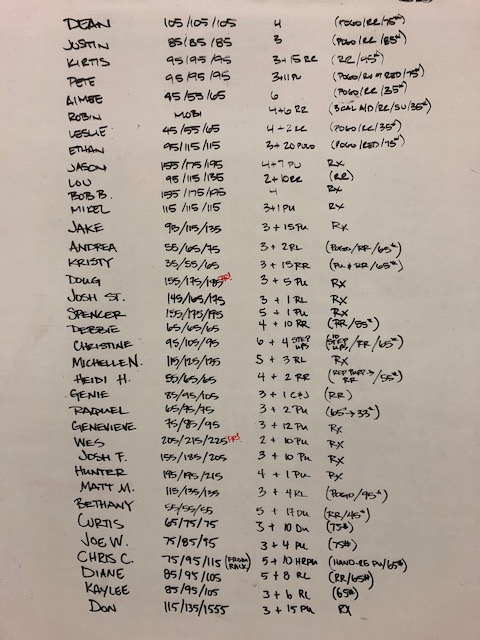 DEAN 105/105/105 4 (POGO/RR/75#)
JUSTIN 85/85/85 3 (POGO/RR/85#)
KIRTIS 95/95/95 3+15 RR (RR/45#)
PETE 95/95/95 3+11 PU (POGO/ RED/75#)
AIMEE 45/55/65 6 (POGO/RR/35#)
ROBIN MOBI 4+6 RR (3 CAL A/D/RR/SU/35#)
LESLIE 45/55/65 4+2 RR (POGO/RR/35#)
ETHAN 95/115/115 3+20 POGO (POGO/RED/75#)
JASON 155/175/195 4+7 PU RX
LOU 95/115/135 2+10 RR (RR)
BOB B. 155/175/195 4 RX
MIKEL 115/115/115 3+1 PU RX
JAKE 95/115/135 3+15 PU RX
ANDREA 55/65/75 3+2 RL (POGO/RR/65#)
KRISTY 35/55/65 3+15 RR (PU+RR/65#)
DOUG 155/175/185 PR! 3+5 PU RX
JOSH ST. 145/165/175 3+1 RL RX
SPENCER 155/175/195 5+1 PU RX
DEBBIE 65/65/65 4+10 RR (RR/55#)
CHRISTINE 95/105/95 6+4 STEP UPS (10 STEP UPS/RR/65#)
MICHELLE N. 115/125/135 5+3 RL RX
HEIDI H. 55/65/65 4+2 RR (RED PU→RR/55#)
GENIE 85/95/105 3+1 C&J (RR)
RAQUEL 65/75/75 3+2 PU (65→33#)
GENEVIEVE 75/85/95 3+12 PU RX
WES 205/215/225 PR! 2+10 PU RX
JOSH F. 155/185/205 3+10 PU RX
HUNTER 195/195/215 4+1 PU RX
MATT M. 115/135/135 3+4 RL (POGO/95#)
BETHANY 55/55/55 5+17 DU (RR/45#)
CURTIS 65/75/75 3+10 DU (75#)
JOE W. 75/85/95 3+4 PU (75#)
CHRIS C. 75/95/115 (FROM RACK) 5+10 HRPU (HAND-RE PU/65#)
DIANE 85/95/105 5+8 RL (RR/65#)
KAYLEE 85/95/105 3+6 RL (65#)
DON 115/135/1555 3+15 PU RX